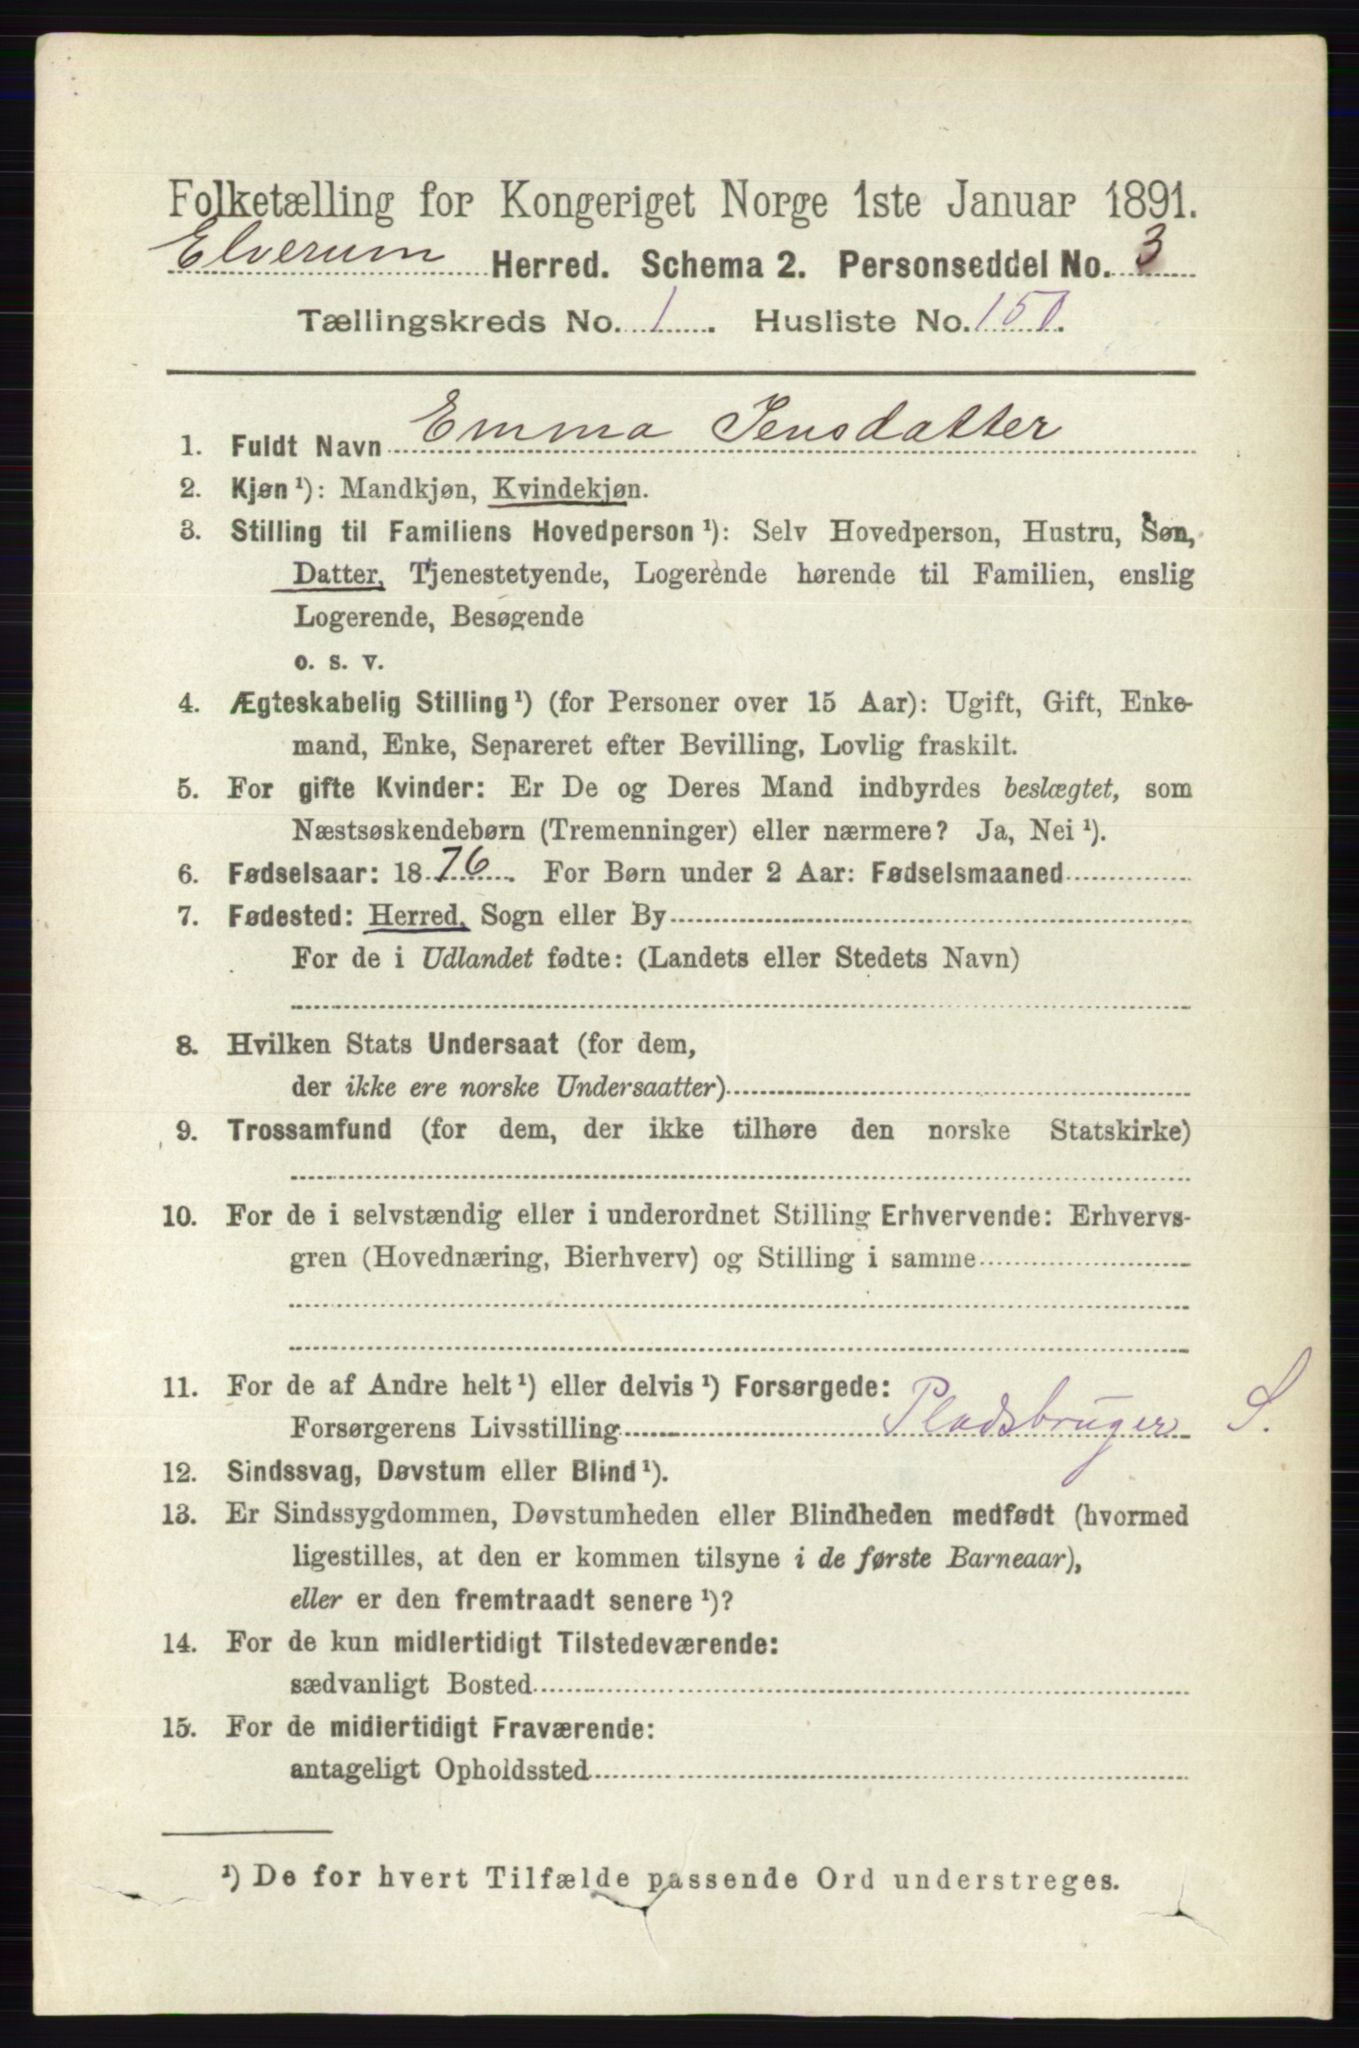 Folketælling for Kongeriget Norge 1ste Januar 1891.
Elverum Herred. Schema 2. Personseddel No. 3
Tællingskreds No. 1. Husliste No. 150.
1. Fuldt Navn Emma Jensdatter
2. Kjøn ¹): Mandkjøn, Kvindekjøn.
3. Stilling til Familiens Hovedperson ¹): Selv Hovedperson, Hustru, Søn,
Datter, Tjenestetyende, Logerende hørende til Familien, enslig
Logerende, Besøgende
o. s. v.
4. Ægteskabelig Stilling ¹) (for Personer over 15 Aar): Ugift, Gift, Enke-
mand, Enke, Separeret efter Bevilling, Lovlig fraskilt.
5. For gifte Kvinder: Er De og Deres Mand indbyrdes beslægtet, som
Næstsøskendebørn (Tremenninger) eller nærmere? Ja, Nei ¹).
6. Fødselsaar: 1876. For Børn under 2 Aar: Fødselsmaaned
7. Fødested: Herred, Sogn eller By
For de i Udlandet fødte: (Landets eller Stedets Navn)
8. Hvilken Stats Undersaat (for dem,
der ikke ere norske Undersaatter)
9. Trossamfund (for dem, der ikke tilhøre den norske Statskirke)
10. For de i selvstændig eller i underordnet Stilling Erhvervende: Erhvervs-
gren (Hovednæring, Bierhverv) og Stilling i samme
11. For de af Andre helt ¹) eller delvis ¹) Forsørgede:
Forsørgerens Livsstilling Pladsbruger S.
12. Sindssvag, Døvstum eller Blind ¹).
13. Er Sindssygdommen, Døvstumheden eller Blindheden medfødt (hvormed
ligestilles, at den er kommen tilsyne i de første Barneaar),
eller er den fremtraadt senere ¹)?
14. For de kun midlertidigt Tilstedeværende:
sædvanligt Bosted
15. For de midlertidigt Fraværende:
antageligt Opholdssted
¹) De for hvert Tilfælde passende Ord understreges.